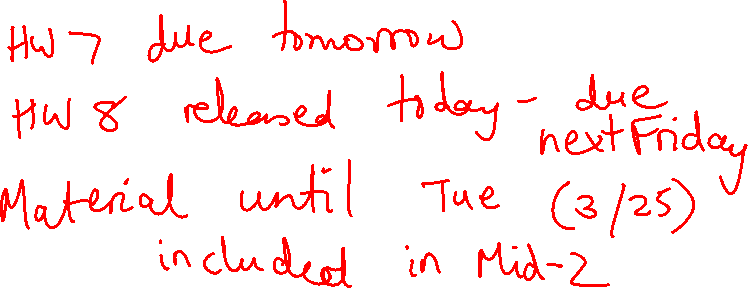 HW 7 due tomorrow
HW 8 released today - due
next Friday
Material until Tue (3/25)
included in Mid-2